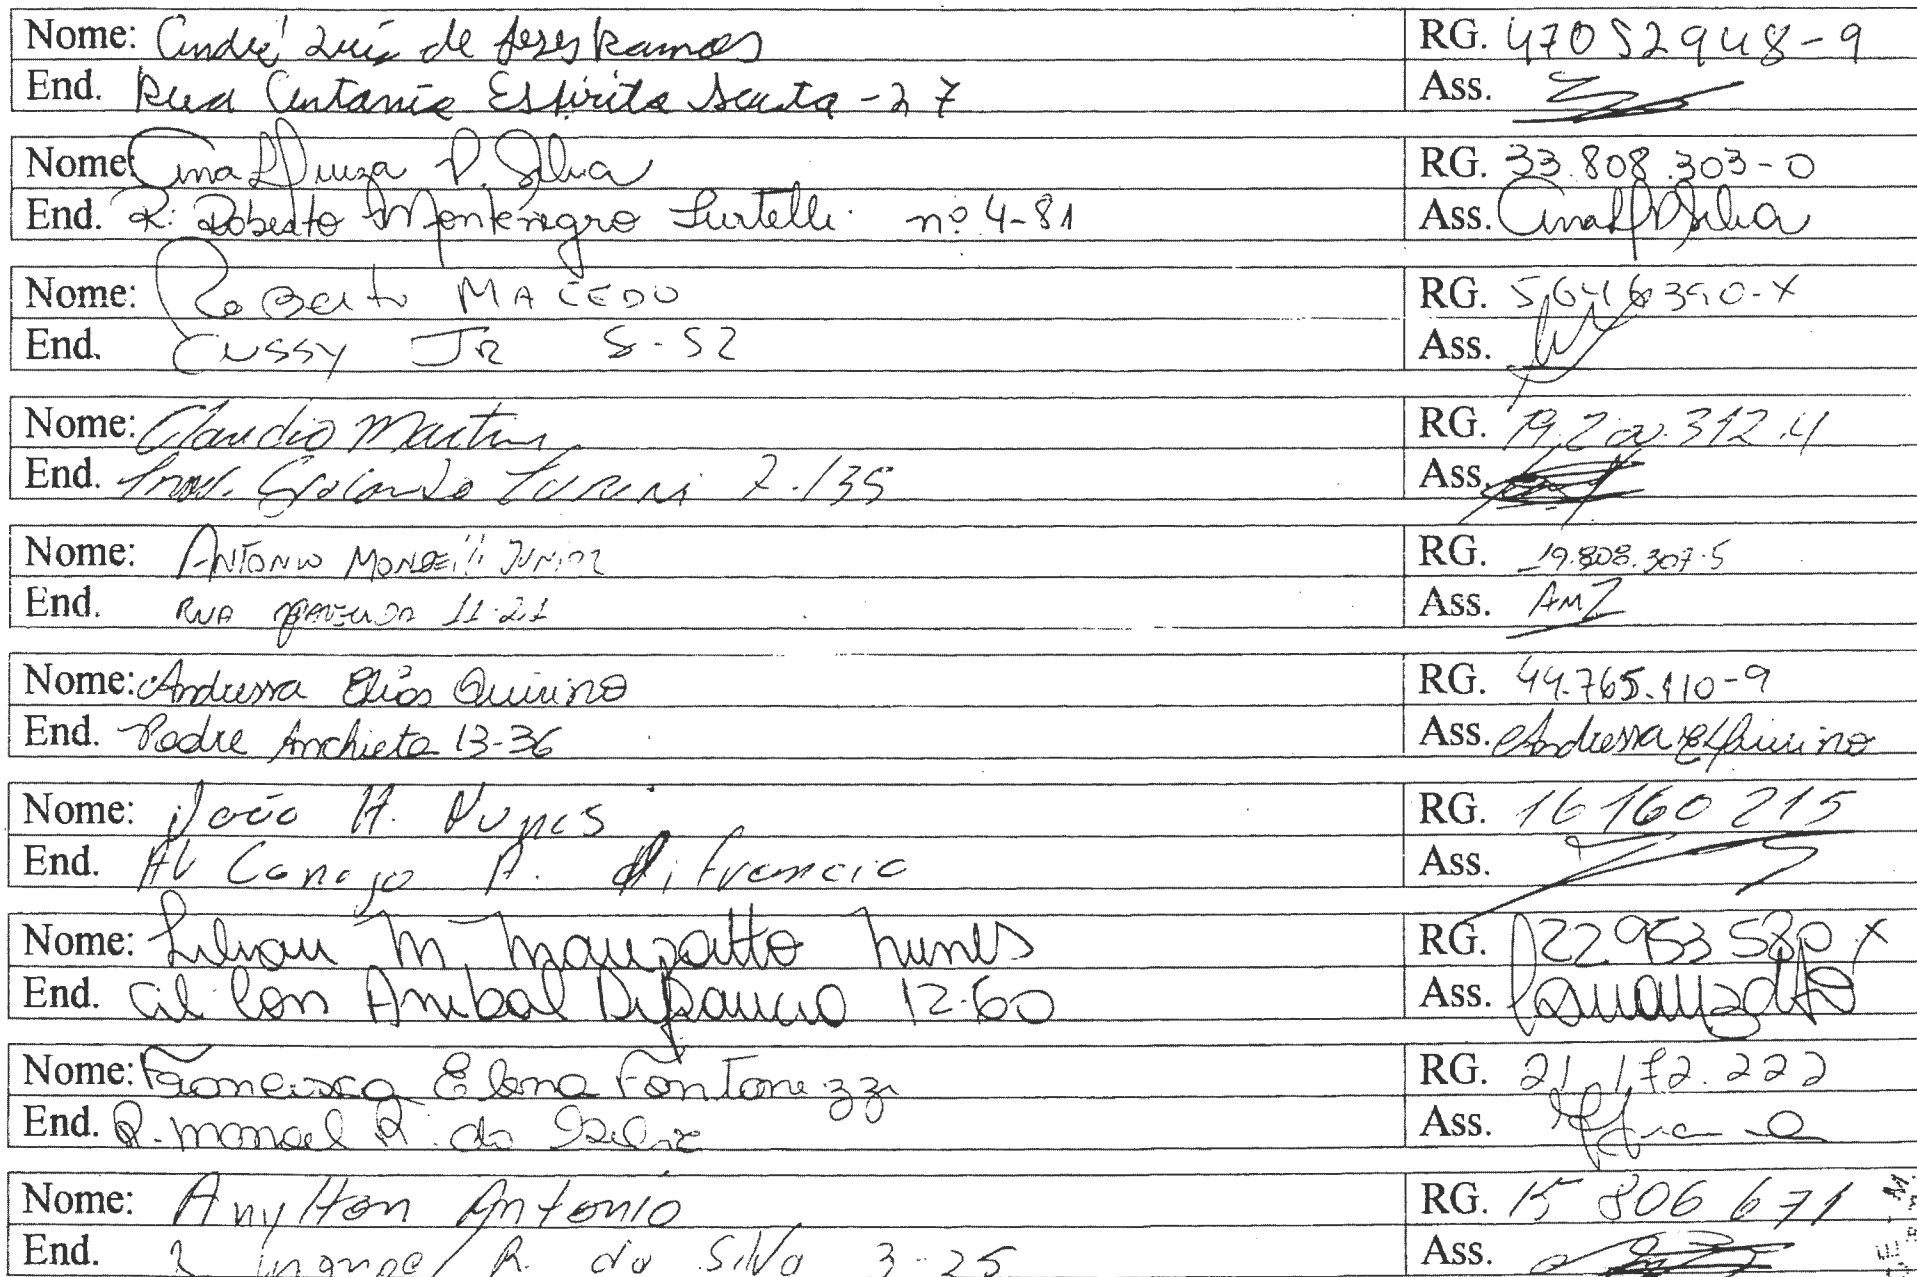 Nome: André Luis de Jesus Ramos RG. 47052948-9
End. Rua Antania Espirito Santa - 27 Ass.
Nome: Ana Luiza P. Silva RG. 33.808.303-0
End. R: Roberto Montenegro nº 4-81 Ass.
Nome: Roberto MACEDO RG. 5,646390-X
End. CUSSY JR 5-52 Ass.
Nome: Claudio Martins RG. 19.200.312.4
End. 7-135 Ass.
Nome: ANTONIO MONDELLI JUNIOR RG. 19.808.307-5
End. RUA 11-21 Ass. AMJ
Nome: Andressa Elias Quirino RG. 44.765.110-9
End. Padre Anchieta 13-36 Ass. Andressa E Quirino
Nome: João A. Nunes RG. 16160215
End. AV Conego A. Difrancia Ass.
Nome: Lilian M. Manzatto Nunes RG. 22953580X
End. Al Con Anibal Difrancia 12-60 Ass.
Nome: Francisca Elena Fontanezzi RG. 21.172.222
End. R. Manoel R. da Silva Ass.
Nome: Anylton Antonio RG. 15 806 671
End. R Manoel R. da Silva 3-25 Ass.